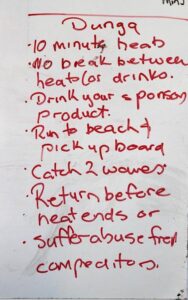 Dunga
• 10 minute heats
• No break between
heats (or drinks.
• Drink your sponsors
product.
• Run to beach &
pick up board
• Catch 2 waves
• Return before
heat ends or
• suffer abuse from
competitors.